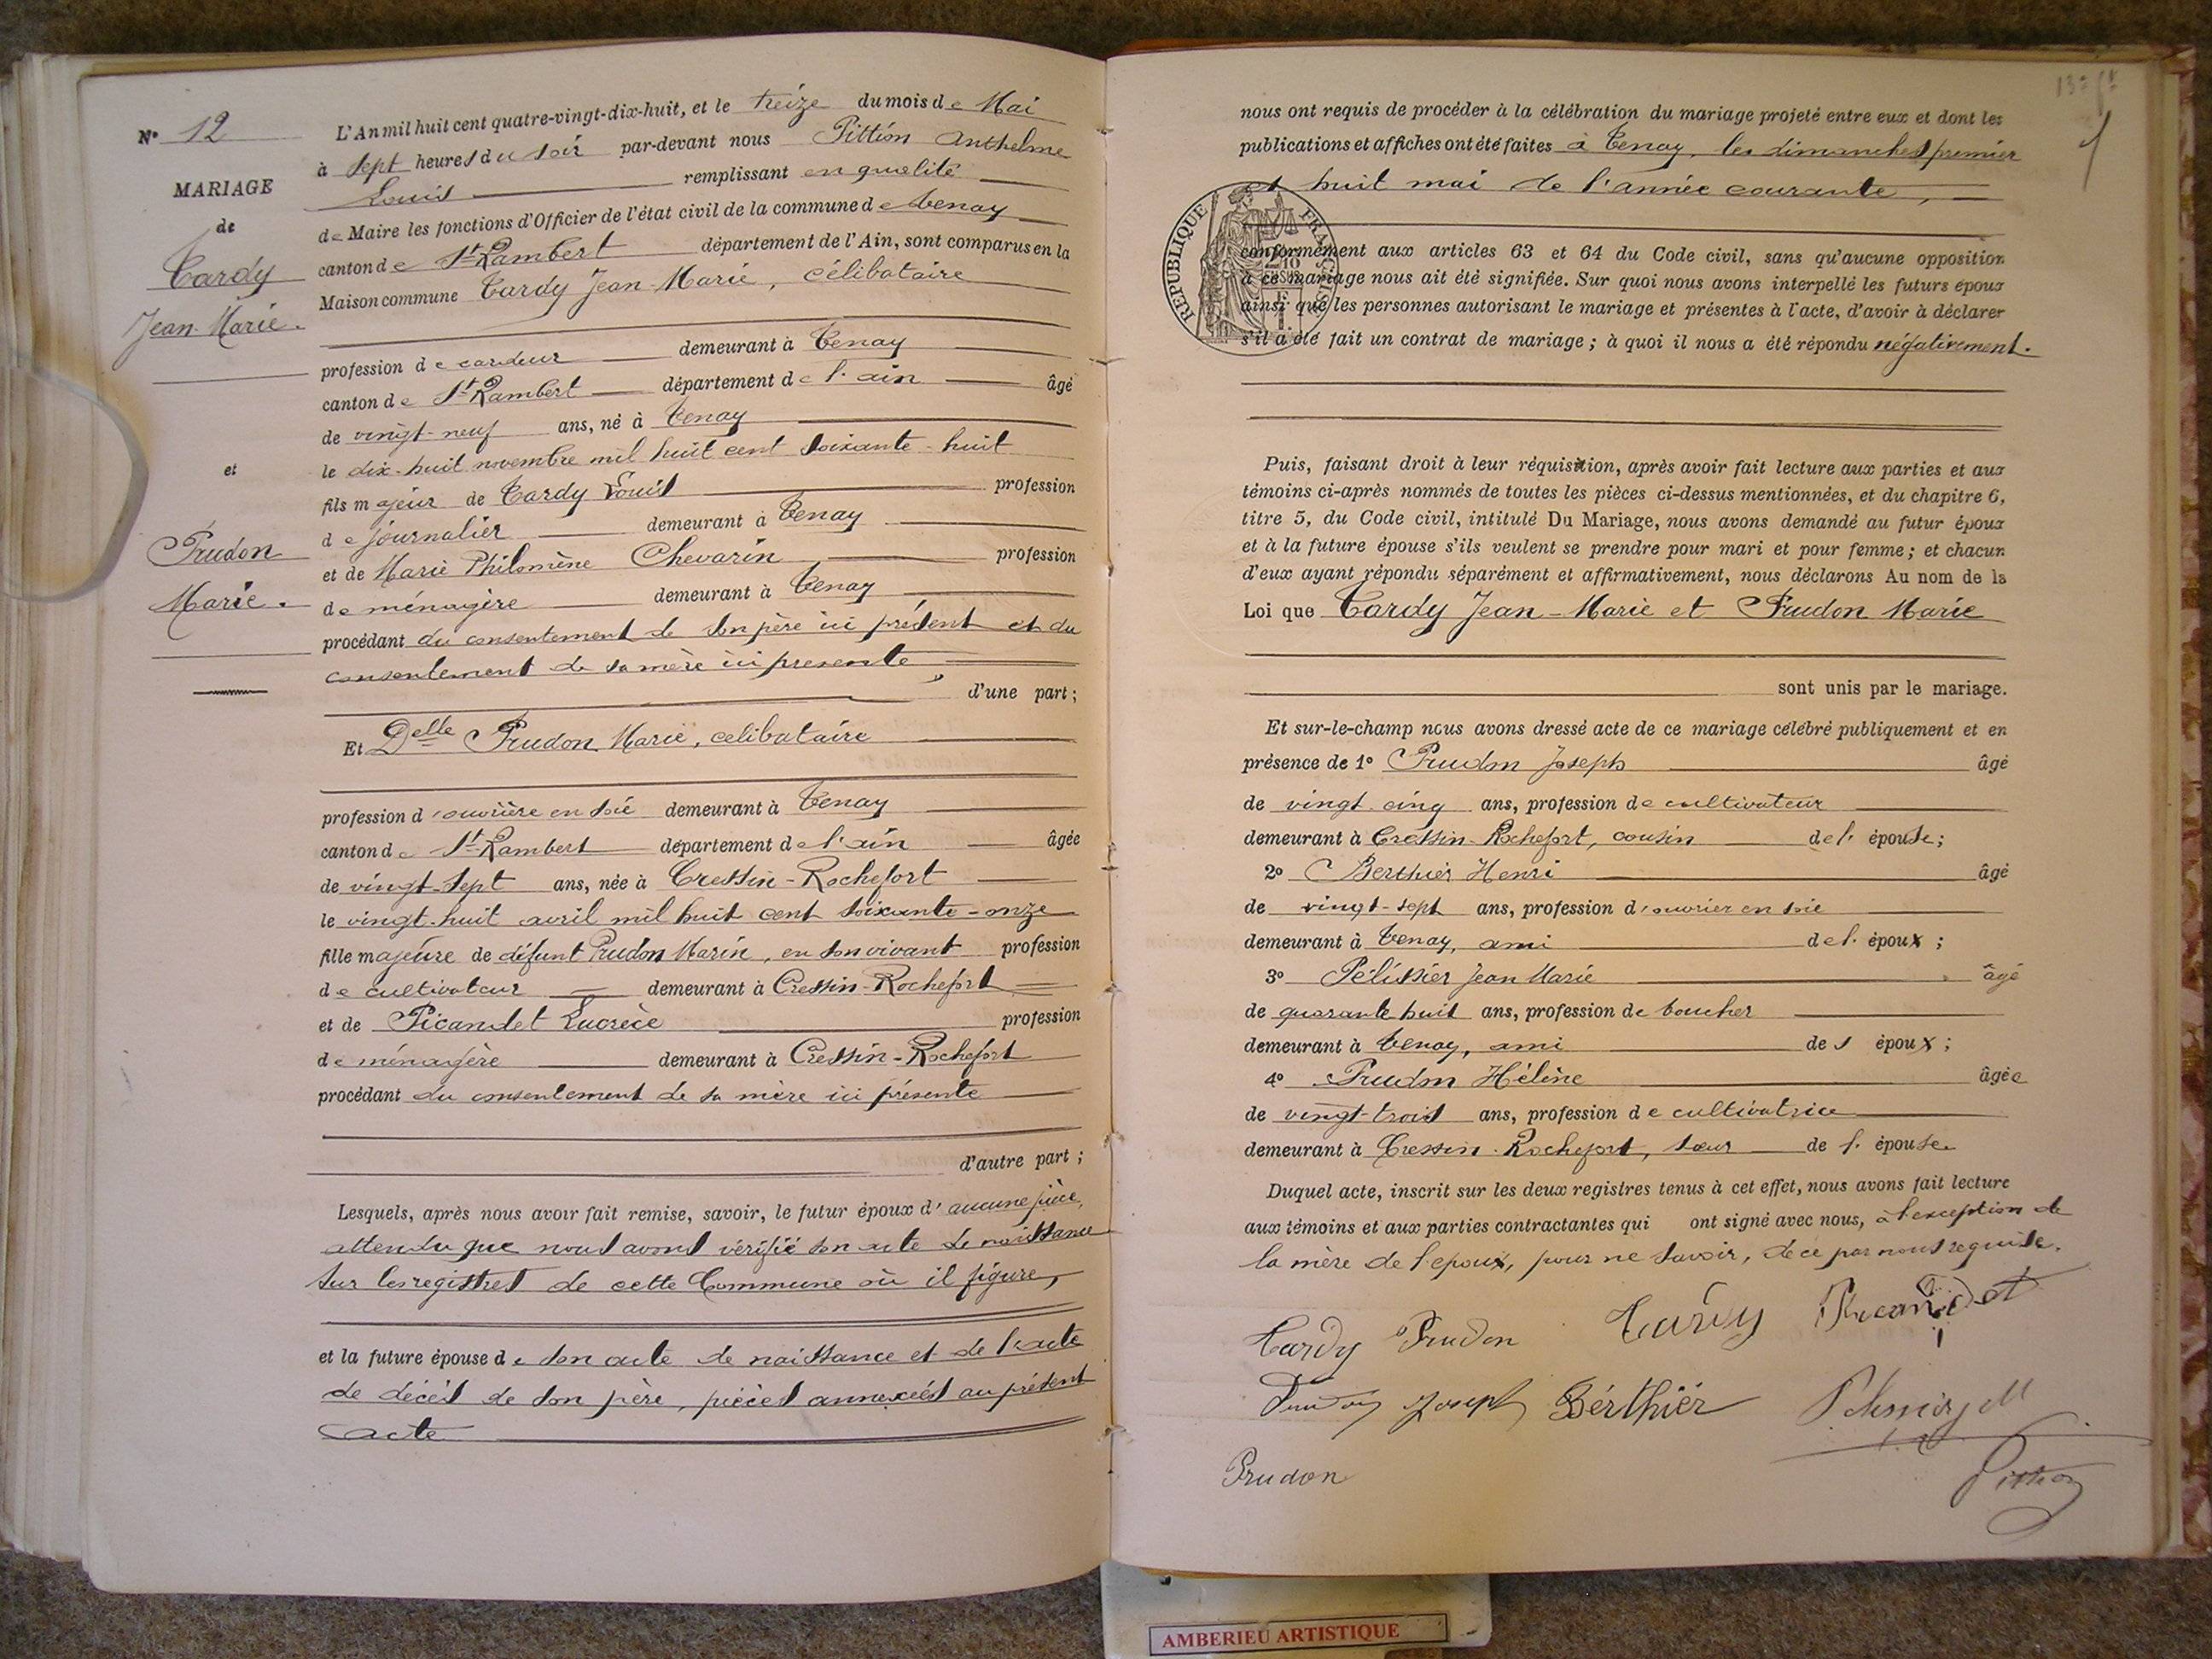 N° 12
MARIAGE
de
Tardy
Jean-Marie.
et
Prudon
Marie.
L'An mil huit cent quatre-vingt-dix-huit, et le treize du mois de Mai
à sept heures du soir par-devant nous Pittion Anthelme
Louis remplissant en qualité
de Maire les fonctions d'Officier de l'état civil de la commune de Tenay
canton de St Rambert département de l'Ain, sont comparus en la
Maison commune Tardy Jean-Marie, célibataire
profession de cardeur demeurant à Tenay
canton de St Rambert département de l'ain âgé
de vingt-neuf ans, né à Tenay
le dix-huit novembre mil huit cent soixante-huit
fils majeur de Tardy Louis profession
de journalier demeurant à Tenay
et de Marie Philomène Chevarin profession
de ménagère demeurant à Tenay
procédant du consentement de son père ici présent et du
consentement de sa mère ici presente
d'une part;
Et Delle Prudon Marie, celibataire
profession d'ouvrière en soie demeurant à Tenay
canton de St Rambert département de l'ain âgée
de vingt-sept ans, née à Cressin-Rochefort
le vingt-huit avril mil huit cent soixante-onze
fille majeure de défunt Prudon Marin, en son vivant profession
de cultivateur demeurant à Cressin-Rochefort
et de Picandet Lucrèce profession
de ménagère demeurant à Cressin-Rochefort
procédant du consentement de sa mère ici présente
d'autre part;
Lesquels, après nous avoir fait remise, savoir, le futur époux d'aucune pièce,
attendu que nous avons vérifié son acte de naissance
sur les registres de cette Commune où il figure,
et la future épouse de son acte de naissance et de l'acte
de décès de son père, pièces annexées au présent
acte
nous ont requis de procéder à la célébration du mariage projeté entre eux et dont les
publications et affiches ont été faites à Tenay, les dimanches premier
et huit mai de l'année courante,
REPUBLIQUE FRANÇAISE
conformément aux articles 63 et 64 du Code civil, sans qu'aucune opposition
à ce mariage nous ait été signifiée. Sur quoi nous avons interpellé les futurs époux
ainsi que les personnes autorisant le mariage et présentes à l'acte, d'avoir à déclarer
s'il a été fait un contrat de mariage; à quoi il nous a été répondu négativement.
Puis, faisant droit à leur réquisition, après avoir fait lecture aux parties et aux
témoins ci-après nommés de toutes les pièces ci-dessus mentionnées, et du chapitre 6,
titre 5, du Code civil, intitulé Du Mariage, nous avons demandé au futur époux
et à la future épouse s'ils veulent se prendre pour mari et pour femme; et chacun
d'eux ayant répondu séparément et affirmativement, nous déclarons Au nom de la
Loi que Tardy Jean-Marie et Prudon Marie
sont unis par le mariage.
Et sur-le-champ nous avons dressé acte de ce mariage célébré publiquement et en
présence de 1° Prudon Joseph âgé
de vingt-cinq ans, profession de cultivateur
demeurant à Cressin-Rochefort, cousin de l'épouse;
2° Berthier Henri âgé
de vingt-sept ans, profession d'ouvrier en soie
demeurant à Tenay, ami de l'époux;
3° Pélissier Jean Marie âgé
de quarante huit ans, profession de boucher
demeurant à Tenay, ami des époux;
4° Prudon Hélène âgée
de vingt-trois ans, profession de cultivatrice
demeurant à Cressin-Rochefort, sœur de l'épouse
Duquel acte, inscrit sur les deux registres tenus à cet effet, nous avons fait lecture
aux témoins et aux parties contractantes qui ont signé avec nous, à l'exception de
la mère de l'époux, pour ne savoir, de ce par nous requise.
Tardy Prudon Tardy Picandet
Prudon Joseph Bérthiér
Prudon Pittion
AMBERIEU ARTISTIQUE